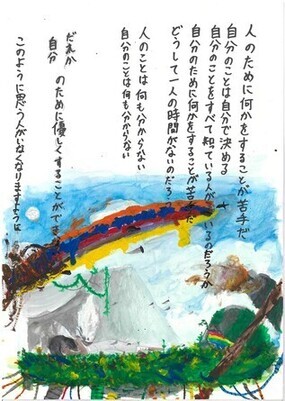 人のために何かをすることが苦手だ
自分のことは自分で決める
自分のことをすべて知っている人がいるのだろうか
自分のために何かをすることが苦手だ
どうして一人の時間がないのだろう
人のことは何も分からない
自分のことは何も分からない
だれか
自分
のために優しくすることができず
このように思う人がいなくなりますように